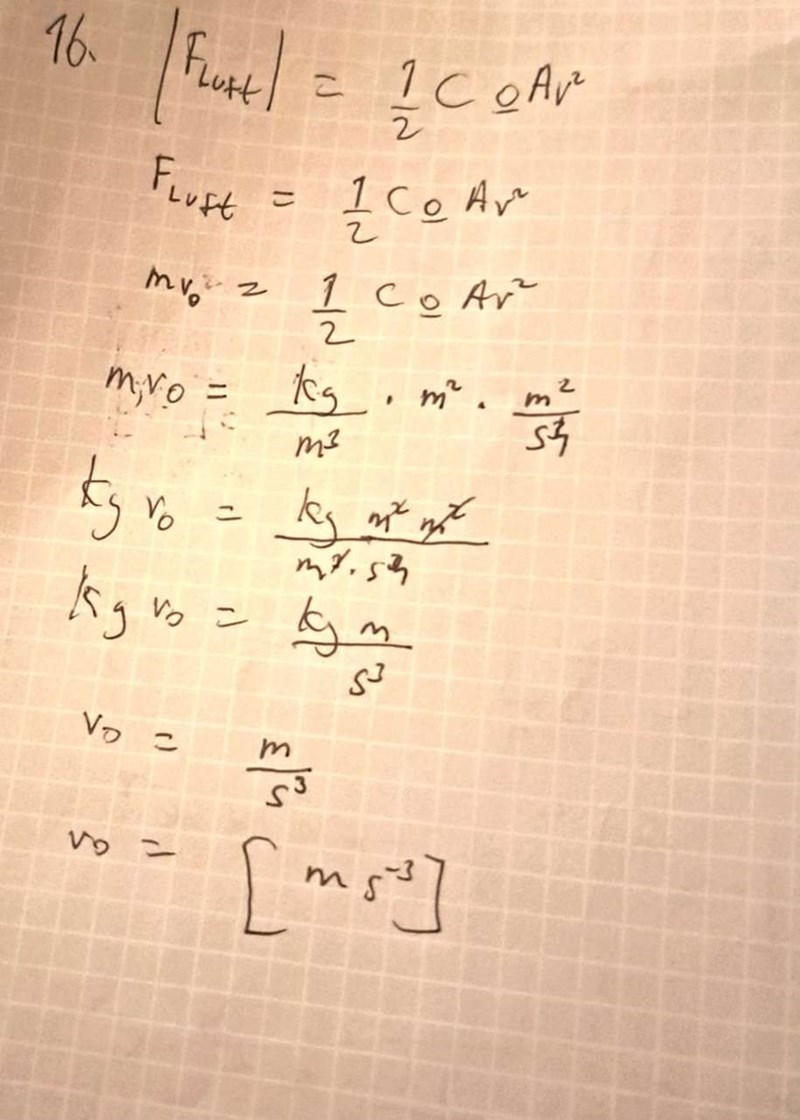 16. |F_Luft| = 1/2 C ρ A v²
F_Luft = 1/2 C ρ A v²
m v₀ = 1/2 C ρ A v²
m, v₀ = kg/m³ · m² · m²/s³
kg v₀ = kg m² m²/m³ · s³
kg v₀ = kg m/s³
v₀ = m/s³
v₀ = [m s⁻³]